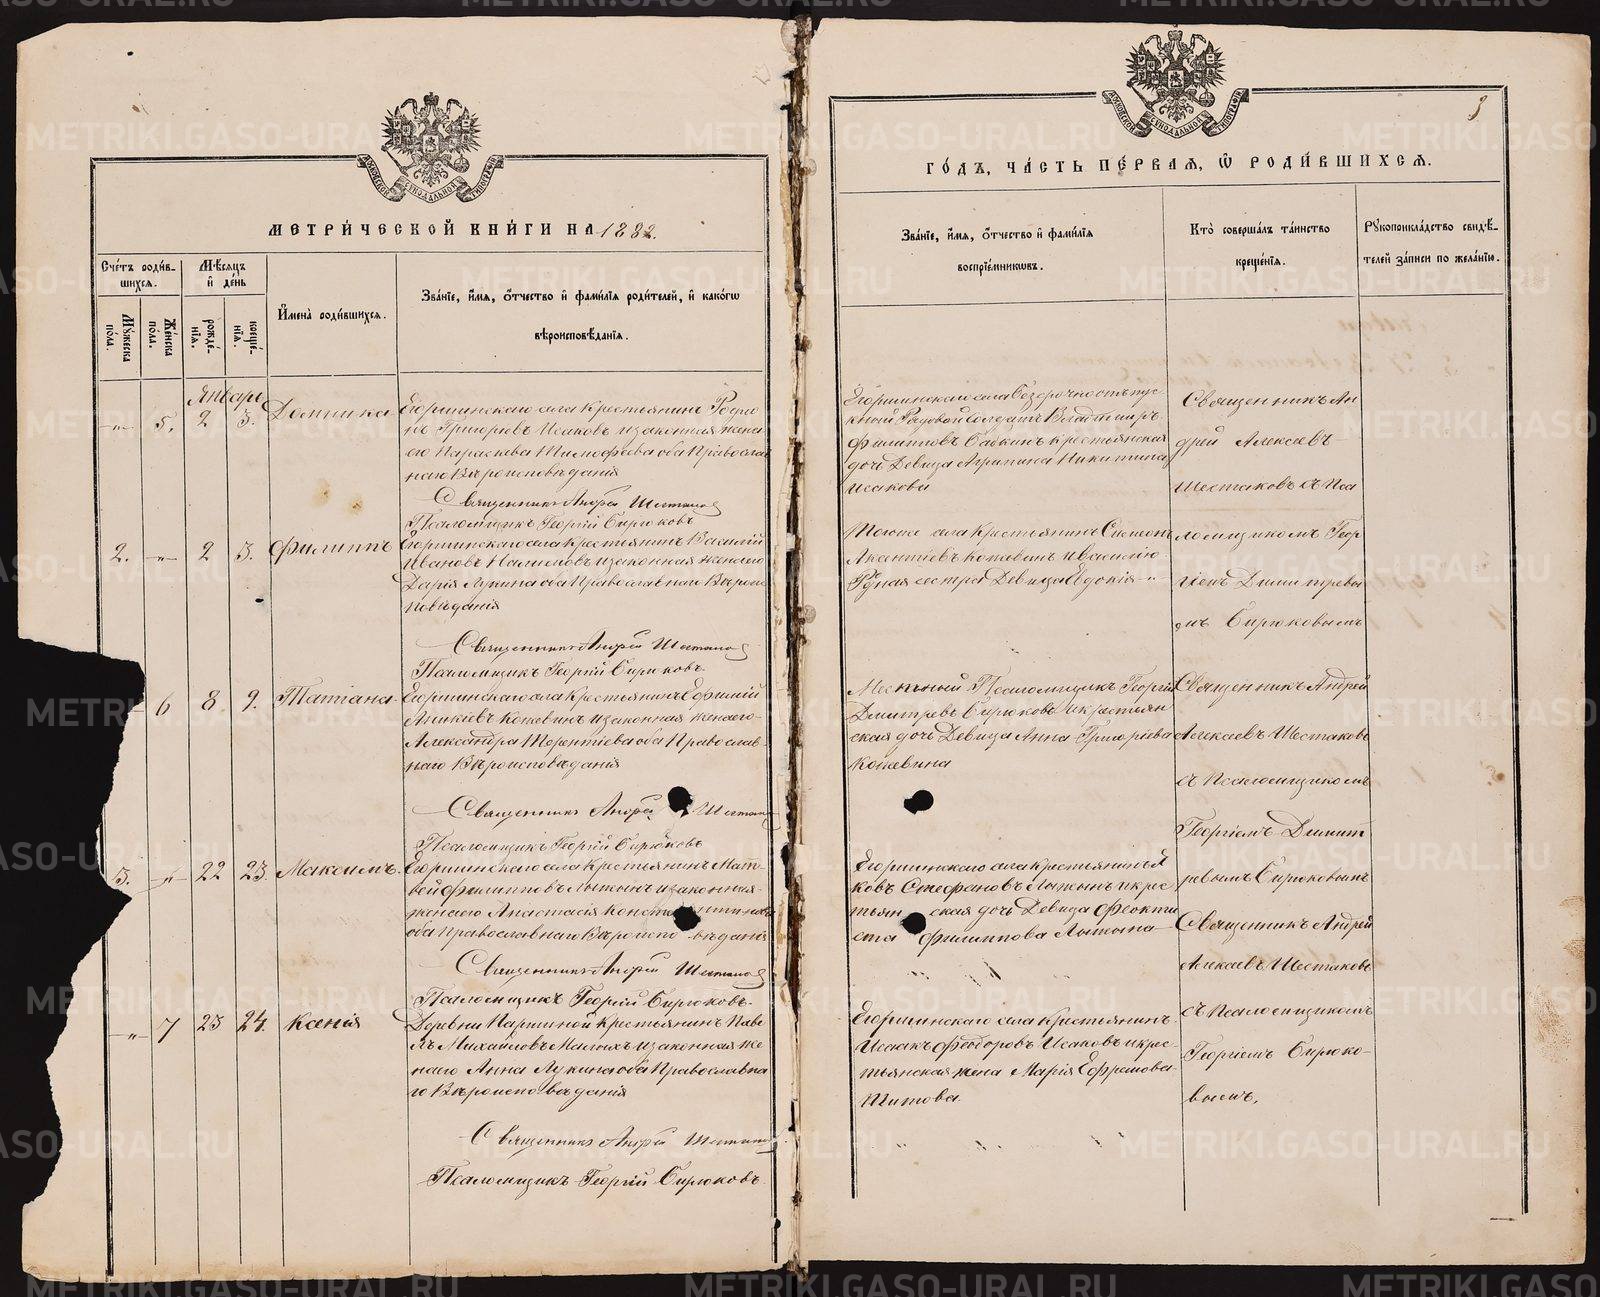 МЕТРИ́ЧЕСКОЙ КНИ́ГИ НА 1882.
Сче́тъ роди́в-
шихся.
Мѣ́сяцъ
и҆ де́нь
И҆мена̀ роди́вшихся.
Зва́нїе, и҆́мѧ, ѻ҆́тчество и҆ фамі́лїѧ роди́телей, и҆ како́гѡ
вѣроисповѣ́данїѧ.
Мꙋ́жеска
по́ла.
Же́нска
по́ла.
рожде́-
нїѧ.
креще́-
нїѧ.
Январь
5. 2 3. Домника
Егоршинскаго села Крестьянинъ Родіо
нъ Григорьевъ Исаковъ и законная жена
его Параскева Тимофеева оба Православ
наго Вѣроисповѣданія
Священникъ Андрей Шестаков
Псаломщикъ Георгій Бирюковъ
2. „ 2 3. Филиппъ
Егоршинскаго села Крестьянинъ Василій
Ивановъ и законная жена его
Дарія Лукина оба Православнаго Вѣроис
повѣданія
Священникъ Андрей Шестаков
Псаломщикъ Георгій Бирюковъ
6 8 9. Татіана
Егоршинскаго села Крестьянинъ Ефимій
Аникіевъ Кожевинъ и законная жена его
Александра Терентіева оба Православ
наго Вѣроисповѣданія
Священникъ Андрей Шестаков
Псаломщикъ Георгій Бирюковъ
3. „ 22 23. Максимъ
Егоршинскаго села Крестьянинъ Мат
вей Филипповъ и законная
жена его Анастасія Константинова
оба Православнаго Вѣроиспо вѣданія
Священникъ Андрей Шестаков
Псаломщикъ Георгій Бирюковъ
„ 7 23 24. Ксенія
Деревни Паршиной Крестьянинъ Паве
лъ Михайловъ Малыхъ и законная же
на его Анна Лукина оба Православна
го Вѣроисповѣданія
Священникъ Андрей Шестаков
Псаломщикъ Георгій Бирюковъ
3
ГО́ДЪ, ЧА́СТЬ ПЕ́РВАѦ, Ѽ РОДИ́ВШИХСѦ.
Зва́нїе, и҆́мѧ, ѻ҆́тчество и҆ фамі́лїѧ
воспрїе́мникѡвъ.
Кто̀ соверша́лъ та́инство
креще́нїѧ.
Рꙋкоприкла́дство свидѣ́-
телей за́писи по жела́нїю.
Егоршинскаго села Безсрочноотпус
кной Рядовой Солдатъ Владимиръ
Филипповъ Бабкинъ крестьянская
дочь Девица Агрипина Никитина
Исакова
Священникъ Ан
дрей Алексѣевъ
Шестаковъ съ Пса
ломщикомъ Геор
гіемъ Димитревы
мъ Бирюковымъ
Тогоже села Крестьянинъ Симеон
Аксентіевъ Кожевинъ и Василію
Родная сестра Девица Евдокія
Местный Псаломщикъ Георгій
Дмитревъ Бирюковъ и крестьян
ская дочь Девица Анна Григоріева
Кожевина
Священникъ Андрей
Алексѣевъ Шестаковъ
съ Псаломщикомъ
Георгіемъ Димит
ревымъ Бирюковымъ
Егоршинскаго села Крестьянинъ Я
ковъ Стефановъ и крес
тьян ская дочь Девица Феокти
ста Филиппова
Священникъ Андрей
Алексѣевъ Шестаковъ
съ Псаломщикомъ
Георгіемъ Бирюко-
вымъ.
Егоршинскаго села Крестьянинъ
Исаакъ Феодоровъ Исаковъ и крес
тьянская жена Марія Ефремова
Титова
METRIKI.GASO-URAL.RU